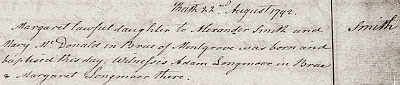 22nd August 1792.
Margaret lawful daughter to Alexander Smith and
Mary McDonald in Brae of Montgrove was born and
baptised this day. Witnesses Adam Longmoor in Brae
& Margaret Longmoor there.
Smith